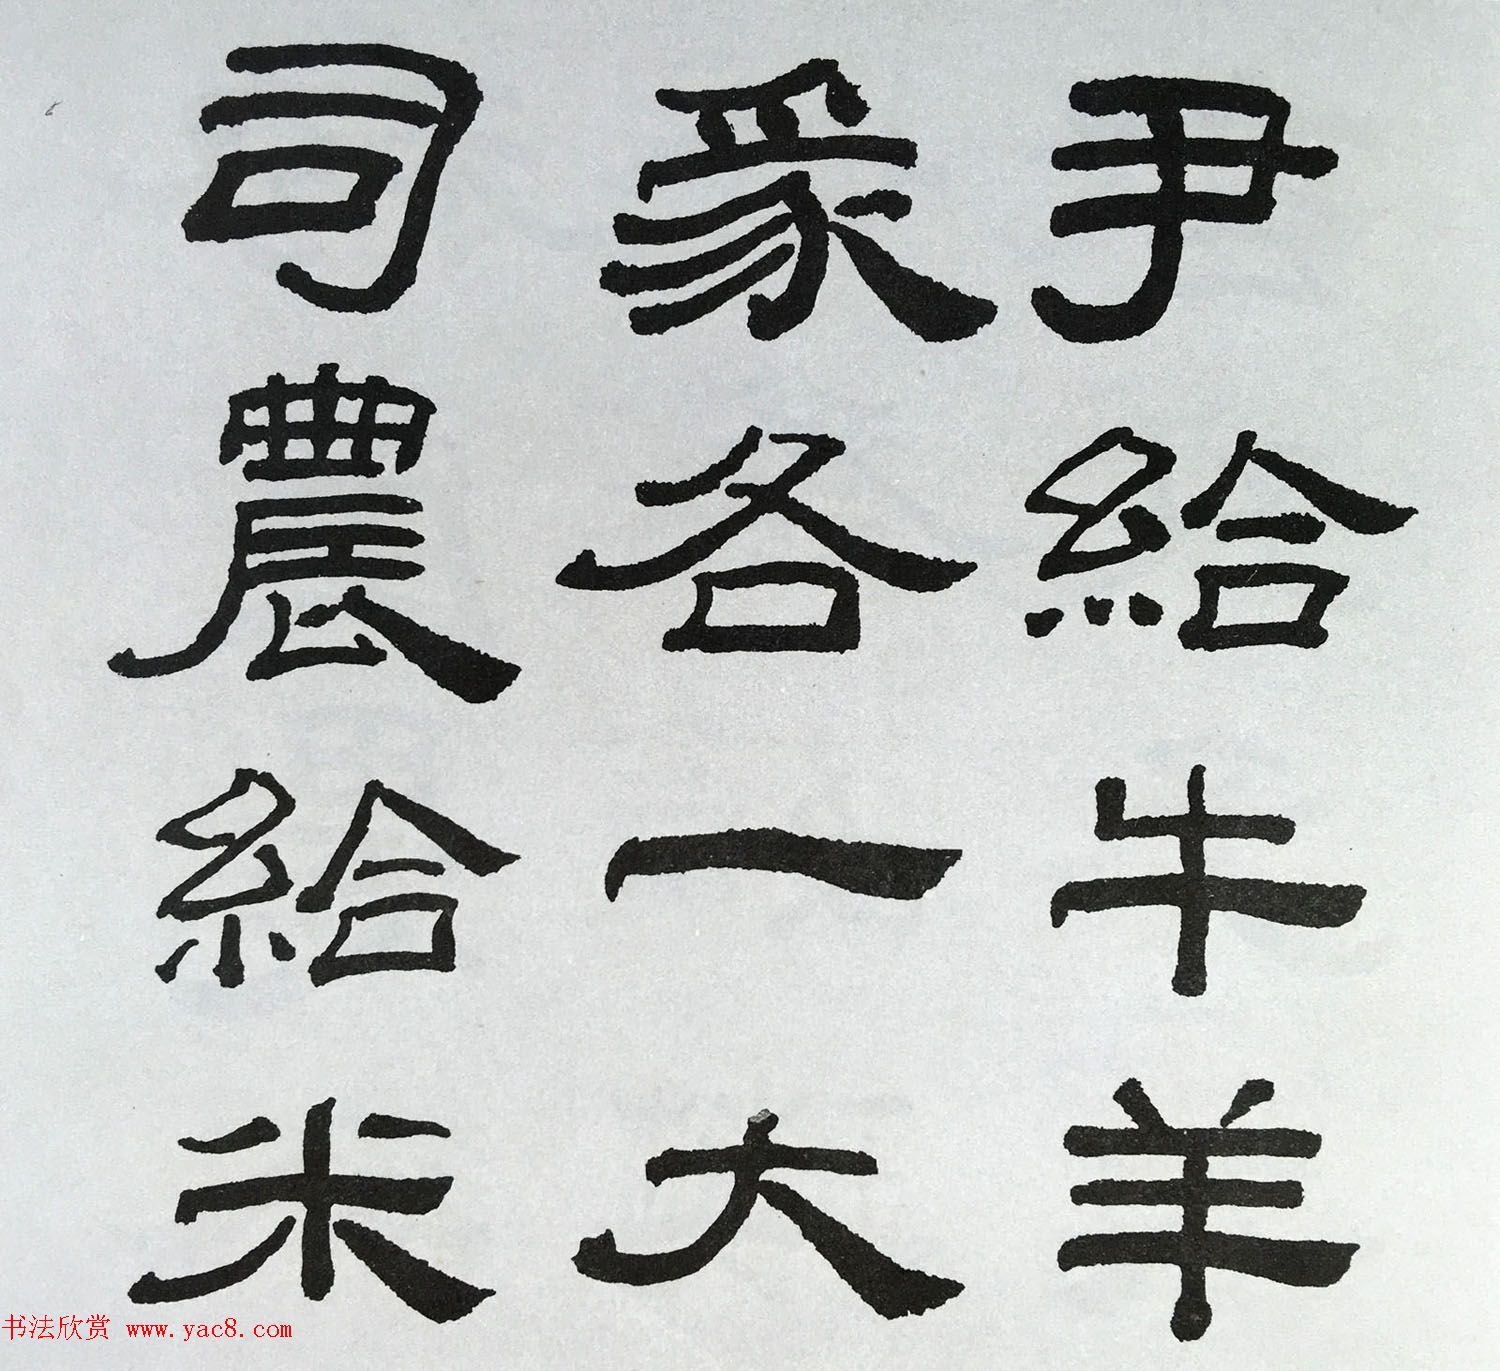 尹給牛羊
象各一大
司農給米
书法欣赏 www.yac8.com